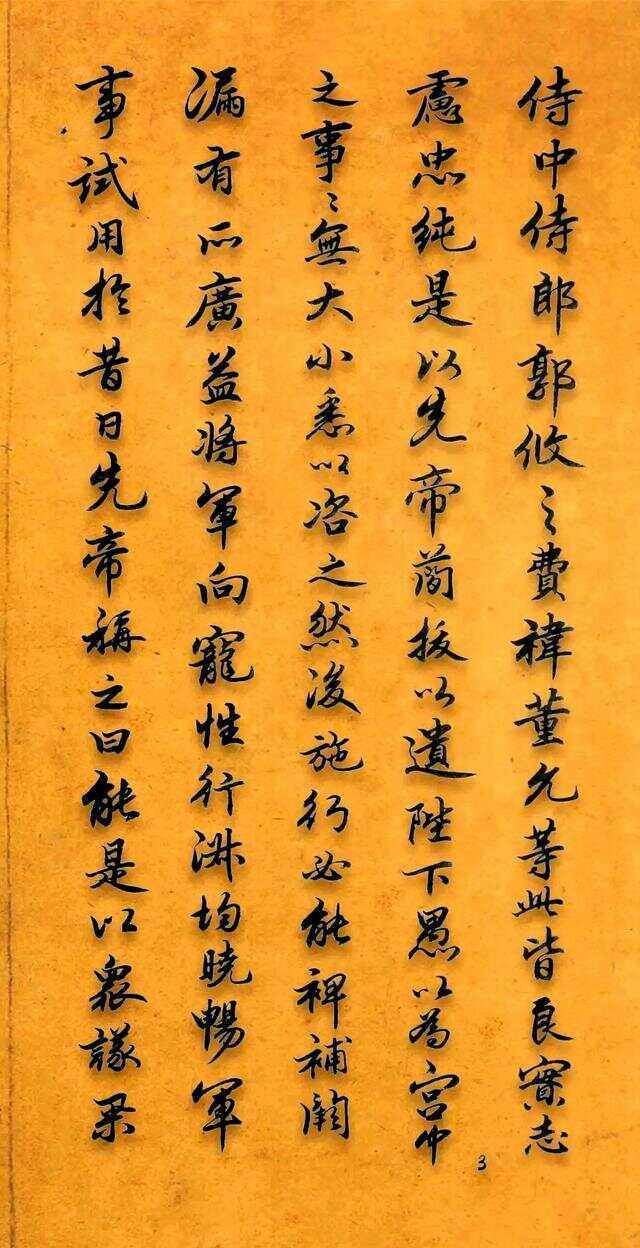 侍中侍郎郭攸之費禕董允等此皆良實志
慮忠純是以先帝蕳拔以遺陛下愚以為宮中
之事〻無大小悉以咨之然後施行必能裨補闕
漏有所廣益將軍向寵性行淑均曉暢軍
事試用於昔日先帝稱之曰能是以衆議舉
3